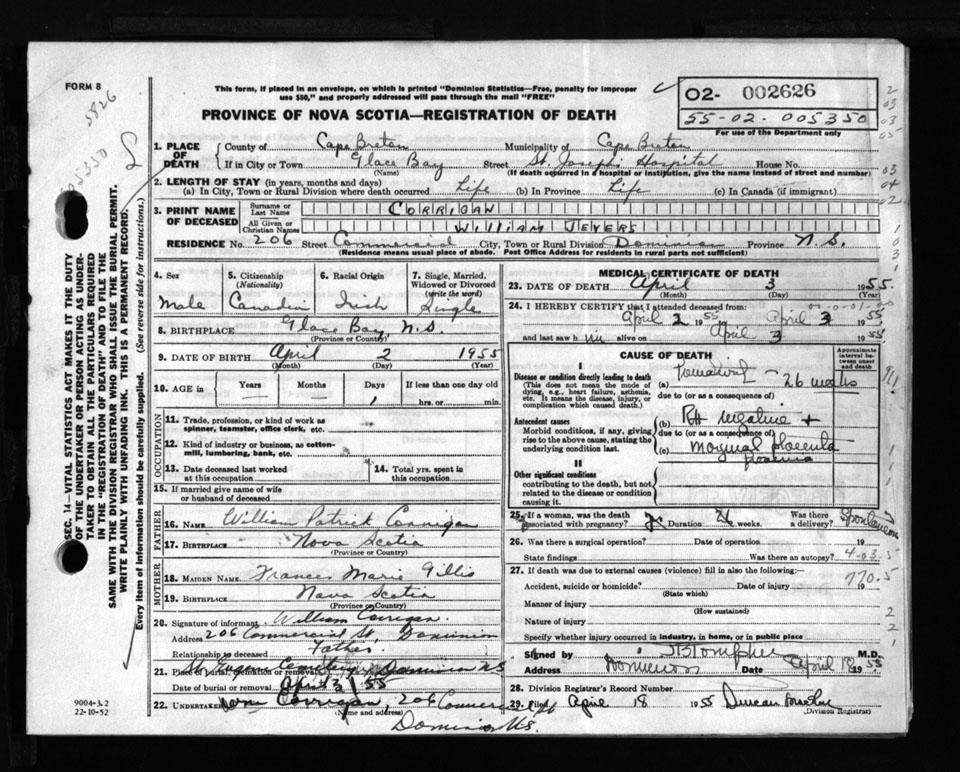 FORM 8
5826
This form, if placed in an envelope, on which is printed "Dominion Statistics—Free, penalty for improper
use $50," and properly addressed will pass through the mail "FREE"
PROVINCE OF NOVA SCOTIA—REGISTRATION OF DEATH
02- 002626
55-02. 005350
For use of the Department only
SEC. 14—VITAL STATISTICS ACT MAKES IT THE DUTY
OF THE UNDERTAKER OR PERSON ACTING AS UNDER-
TAKER TO OBTAIN ALL THE PARTICULARS REQUIRED
IN THE "REGISTRATION OF DEATH" AND TO FILE THE
SAME WITH THE DIVISION REGISTRAR WHO SHALL ISSUE THE BURIAL PERMIT.
WRITE PLAINLY WITH UNFADING INK. THIS IS A PERMANENT RECORD.
Every item of information should be carefully supplied. (See reverse side for instructions.)
1. PLACE OF DEATH
County of Cape Breton Municipality of Cape Breton
If in City or Town Glace Bay Street St. Joseph's Hospital House No.
(Name) (If death occurred in a hospital or institution, give the name instead of street and number)
2. LENGTH OF STAY (in years, months and days)
(a) In City, Town or Rural Division where death occurred Life (b) In Province Life (c) In Canada (if immigrant)
3. PRINT NAME OF DECEASED
Surname or Last Name CORRIGAN
All Given or Christian Names WILLIAM JEVERS
RESIDENCE No. 206 Street Commercial City, Town or Rural Division Dominion Province N.S.
(Residence means usual place of abode. Post Office Address for residents in rural parts not sufficient)
4. Sex
Male
5. Citizenship (Nationality)
Canadian
6. Racial Origin
Irish
7. Single, Married, Widowed or Divorced (write the word)
Single
8. BIRTHPLACE Glace Bay, N.S.
(Province or Country)
9. DATE OF BIRTH April 2 1955
(Month) (Day) (Year)
10. AGE in Years Months Days 1 If less than one day old
hrs. or min.
OCCUPATION
11. Trade, profession, or kind of work as spinner, teamster, office clerk, etc.
12. Kind of industry or business, as cotton-mill, lumbering, bank, etc.
13. Date deceased last worked at this occupation
14. Total yrs. spent in this occupation
15. If married give name of wife or husband of deceased
FATHER
16. NAME William Patrick Corrigan
17. BIRTHPLACE Nova Scotia
(Province or Country)
MOTHER
18. MAIDEN NAME Frances Marie Gillis
19. BIRTHPLACE Nova Scotia
(Province or Country)
20. Signature of informant William Corrigan
Address 206 Commercial St., Dominion
Relationship to deceased Father
21. Place of burial, cremation or removal Dominion NS
Date of burial or removal April 3/55
22. UNDERTAKER Corrigan, 206 Commercial
(Name and address)
Dominion N.S.
9004-3.2
22-10-52
MEDICAL CERTIFICATE OF DEATH
23. DATE OF DEATH April 3 1955.
(Month) (Day) (Year)
24. I HEREBY CERTIFY that I attended deceased from:
April 2 1955 April 3 1955
and last saw h im alive on April 3 1955
CAUSE OF DEATH
Approximate interval between onset and death
I
Disease or condition directly leading to death
(This does not mean the mode of dying, e.g., heart failure, asthenia, etc. It means the disease, injury, or complication which caused death.)
(a) Prematurity - 26 weeks
due to (or as a consequence of)
Antecedent causes
Morbid conditions, if any, giving rise to the above cause, stating the underlying condition last.
(b) RH negative +
due to (or as a consequence of)
(c) marginal placenta
II
Other significant conditions
contributing to the death, but not related to the disease or condition causing it.
25. If a woman, was the death associated with pregnancy? Duration weeks. Was there a delivery? Spontaneous
26. Was there a surgical operation? Date of operation 19
State findings Was there an autopsy?
4-03.5
27. If death was due to external causes (violence) fill in also the following:
770.5
Accident, suicide or homicide? Date of injury 19
(State which)
Manner of injury
(How sustained)
Nature of injury
Specify whether injury occurred in industry, in home, or in public place
Signed by M.D.
Address Dominion Date April 18 1955
28. Division Registrar's Record Number
29. Filed April 18 1955 Duncan
(Division Registrar)